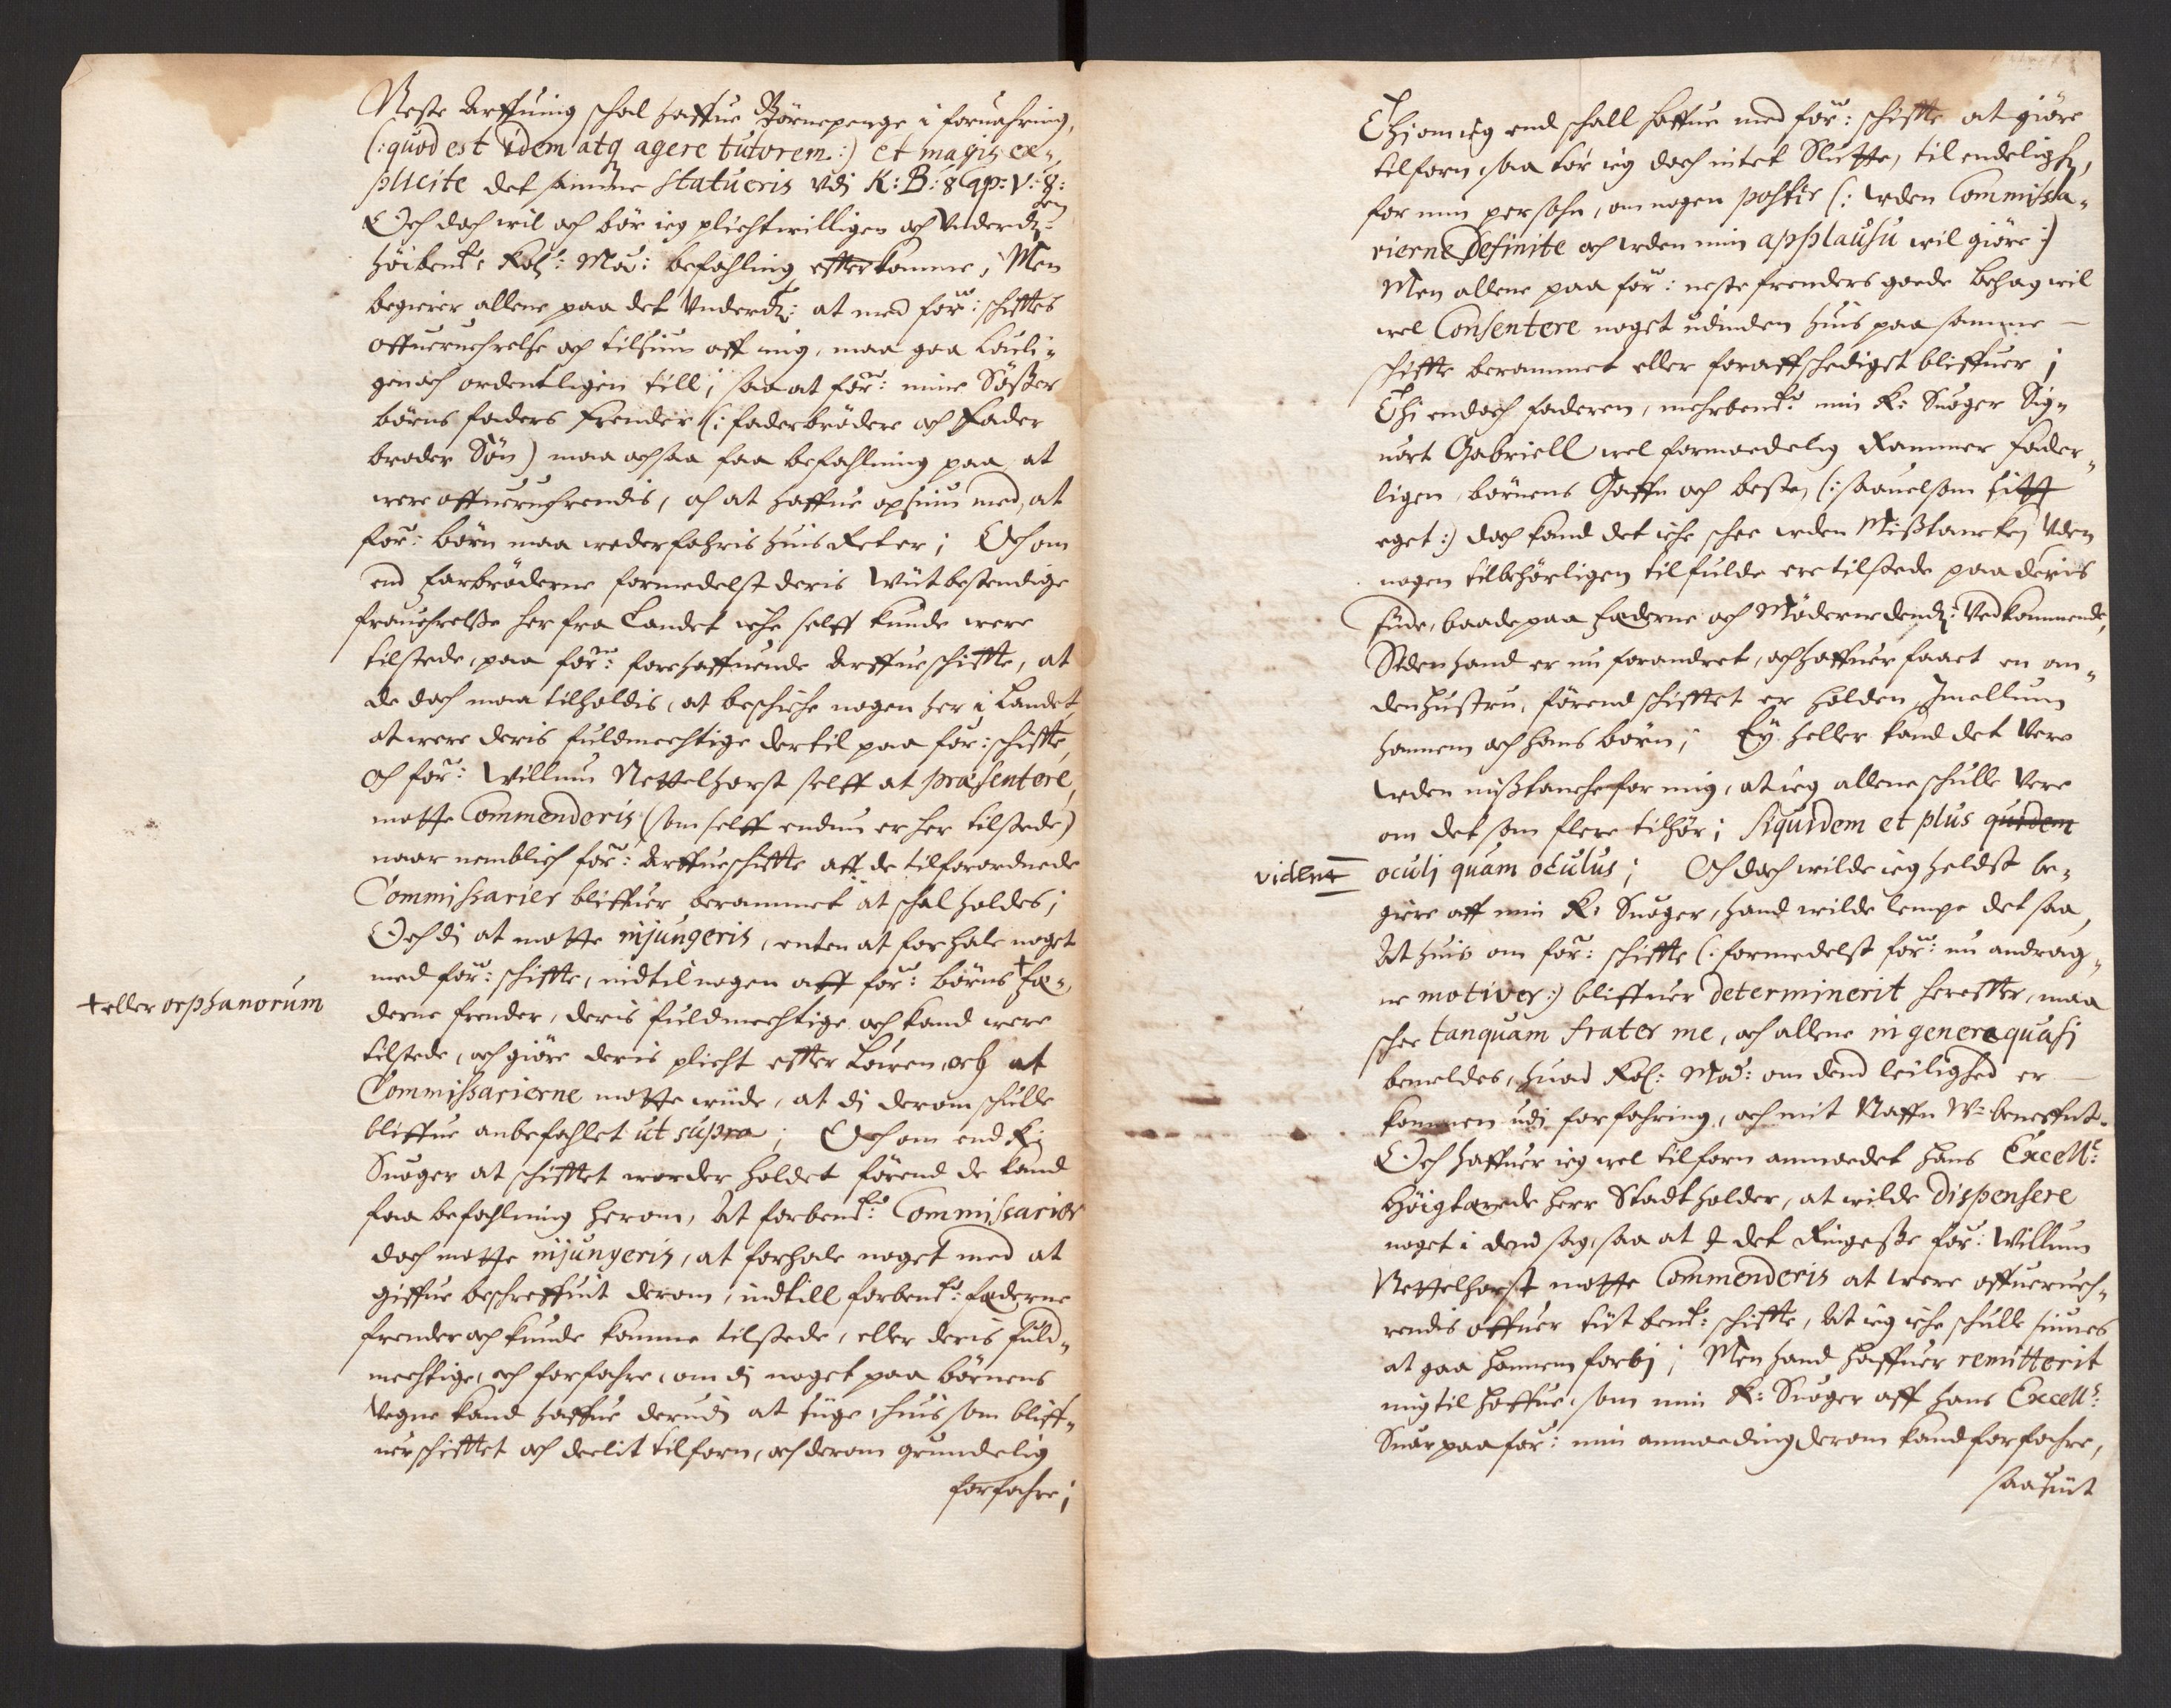 Neste Arffuing schal haffue Börnepenge i foruahring,
(: quod est idem atq agere tutorem :) et magis ex-
plicite det samme statueris vdj K: B: 8 Cap: V: 8:
Och doch wil och bör ieg plichtwilligen och Vnderdn
höibente Kol: May: befahling efterkomme, Men
begierer allene paa det Vnderd: at med for: schifftes
offueruehrelse och tilsiun aff mig, maa gaa Louli-
gen och ordentligen till; saa at for: mine Söster
börns faders frender (: faderbrödere och Fader
broder Sön) maa ochsaa faa befahlning paa at
were offueruerendis, och at haffue opsiun med, at
for: börn maa wederfahris huis Ret er; Och om
end farbröderne formedelst deris Wiitbestendige
frauehrelsse her fra Landet iche selff kunde were
tilstede, paa for: forehaffuende Arffueschiffte, at
de doch maa tilholdis, at beschiche nogen her i Landet,
at were deris fuldmechtige dertil paa for: schiffte,
och for: Willum Nettelhorst selff at præsentere,
motte Commenderis (som selff endnu er her tilstede)
naar nemblich for: Arffueschiffte aff de tilforordnede
Commissarier bliffuer berammet at schal holdes;
Och di at motte injungeris, enten at forhale noget
med for: schiffte, indtil nogen aff for: börns + Fæ-
+ eller orphanorum
derne frender, deris fuldmechtige och kand were
tilstede, och giöre deris plicht effter Louen, och at
Commissarierne motte wiide, at di derom schulle
bliffue anbefahlet ut supra; Och om end K:
Suoger at schifftet worder holdet förend de kand
faa befahlning herom, At forbente: Commissarier
doch motte injungeris, at forhale noget med at
giffue beschreffuit derom, indtill forbente: Fæderne
frender och kunde komme tilstede, eller deris fuld-
mechtige, och forfahre, om di noget paa börnens
Vegne kand haffue derudj at siige, huis som bliff-
uer schifftet och deelit tilforn, och derom grundelig
forfahre;
Thi om ieg end schall haffue med for: schiffte at giöre
tilforn, saa tör ieg doch intet Slutte, til endeligh,
for min persohn, om nogen postir (: uden Commissa-
rierne Definite och uden min applausu wil giöre :)
Men allene paa for: neste frenders goede behag wil
wel Consentere noget udinden huis paa samme
schiffte berammet eller foraffschediget bliffuer;
Thi endoch faderen, wehrbente: min K: Suoger Sig-
uort Gabriell wel formoedelig Rammer fader-
ligen börnens Gaffn och beste, (: saauelsom sitt
eget :) doch kand det iche schee uden Mißtancke, Uden
nogen tilbehörligen tilfulde ere tilstede paa deris
siide, baade paa Fæderne och Möderne dend: Vedkommende,
Siden hand er nu forandret, och haffuer faaet en an-
den hustru, förend schifftet er holden Jmellum
hannem och hans börn; Ey heller kand det Vere
uden mißtanche for mig, at ieg allene schulle Vere
om det som flere tilhör; siquidem et plus quidem
vident oculi quam oculus; Och doch wilde ieg heldst be-
giere aff min K: Suoger, hand wilde lempe det saa,
At huis om for: schiffte (: formedelst for: nu andrag-
ne motiver :) bliffuer determinerit hereffter, maa
schee tanquam frater me, och allene in genere quasi
bemeldes, huad Kol: May: om dend leilighed er
kommen udj forfahring, och mit Naffn W-beneffnt.
Och haffuer ieg wel tilforn anmoedet hans Excell:
Höigbaarede Herr Stadtholder, at wilde dispensere
noget i dend sag, saa at J det Ringeste for: Willum
Nettelhorst motte Commenderis at were offueruerh-
rendis offuer tiit bent: schiffte, At ieg iche schulle siunes
at gaa hannem forbj; Men hand haffuer remitterit
mig til hoffue, som min K: Suoger aff hans Excell:
Suar paa for: min anmoeding derom kand forfahre,
saa siut